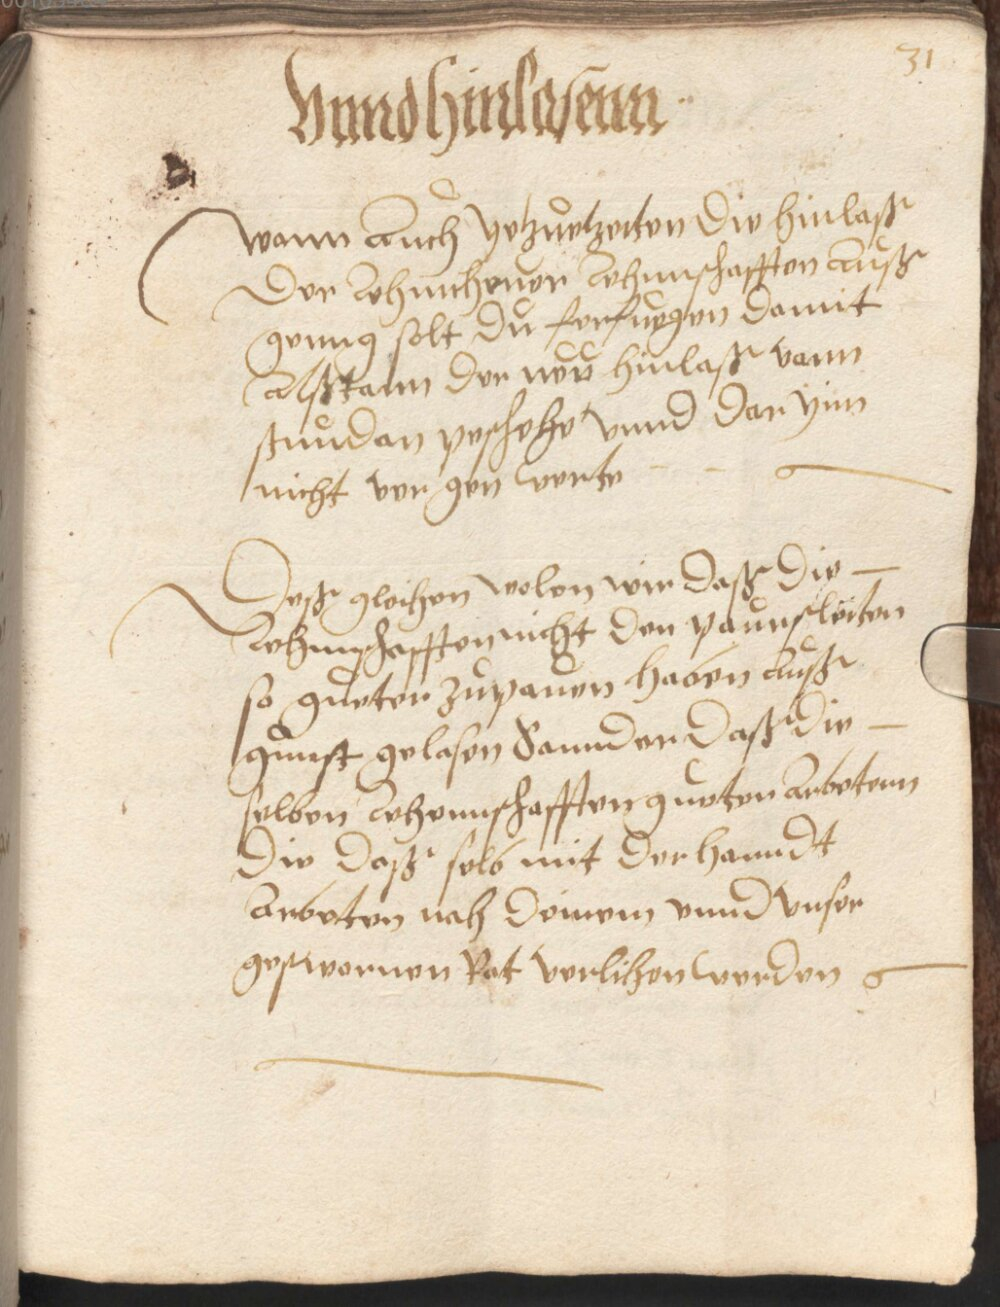 31
Vnnd hinlasenn
Wann Auch yetzuetzeiten Die hinlasß
Der Lehnscheuer Lehnnschafften Auß
genng solt Du furfuegen damit
Alßtann der new hinlasß vann
stundan peschehe vnnd Dar ynn
nicht ver gen werte
Desß gleichen wolen wir Dasß Die
Lehnnschafften nicht den paurssleiten
so gueter zu pauen haben Auß
gunst gelasen Sannder Dasß Die
selben Lehennschafften gueten Arbetern
Die Dasß selb mit Der hanndt
Arbeten nach Deinem vnnd vnser
geswornen Rat verlihen werden